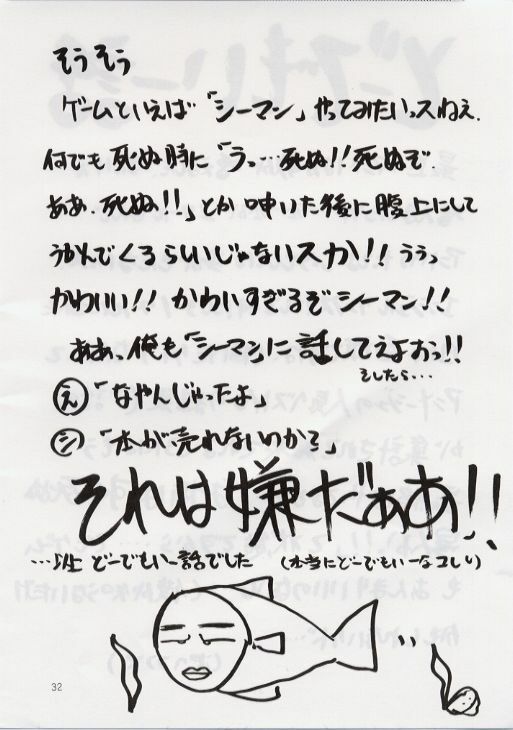 そうそう
ゲームといえば「シーマン」やってみたいっスねえ.
何でも死ぬ時に「うっ…死ぬ!!死ぬぞ
ああ.死ぬ!!」とか呻いた後に腹上にして
うかんでくるらしいじゃないスか!!ううっ
かわいい!!かわいすぎるぞシーマン!!
ああっ俺も「シーマン」に話してえよおっ!!
そしたら…
え「なやんじゃったよ。」
シ「本が売れないのか?」
それは嫌だぁあ!!
…以上 どーでもいい話でした (本当にどーでもいーなコレ)
32